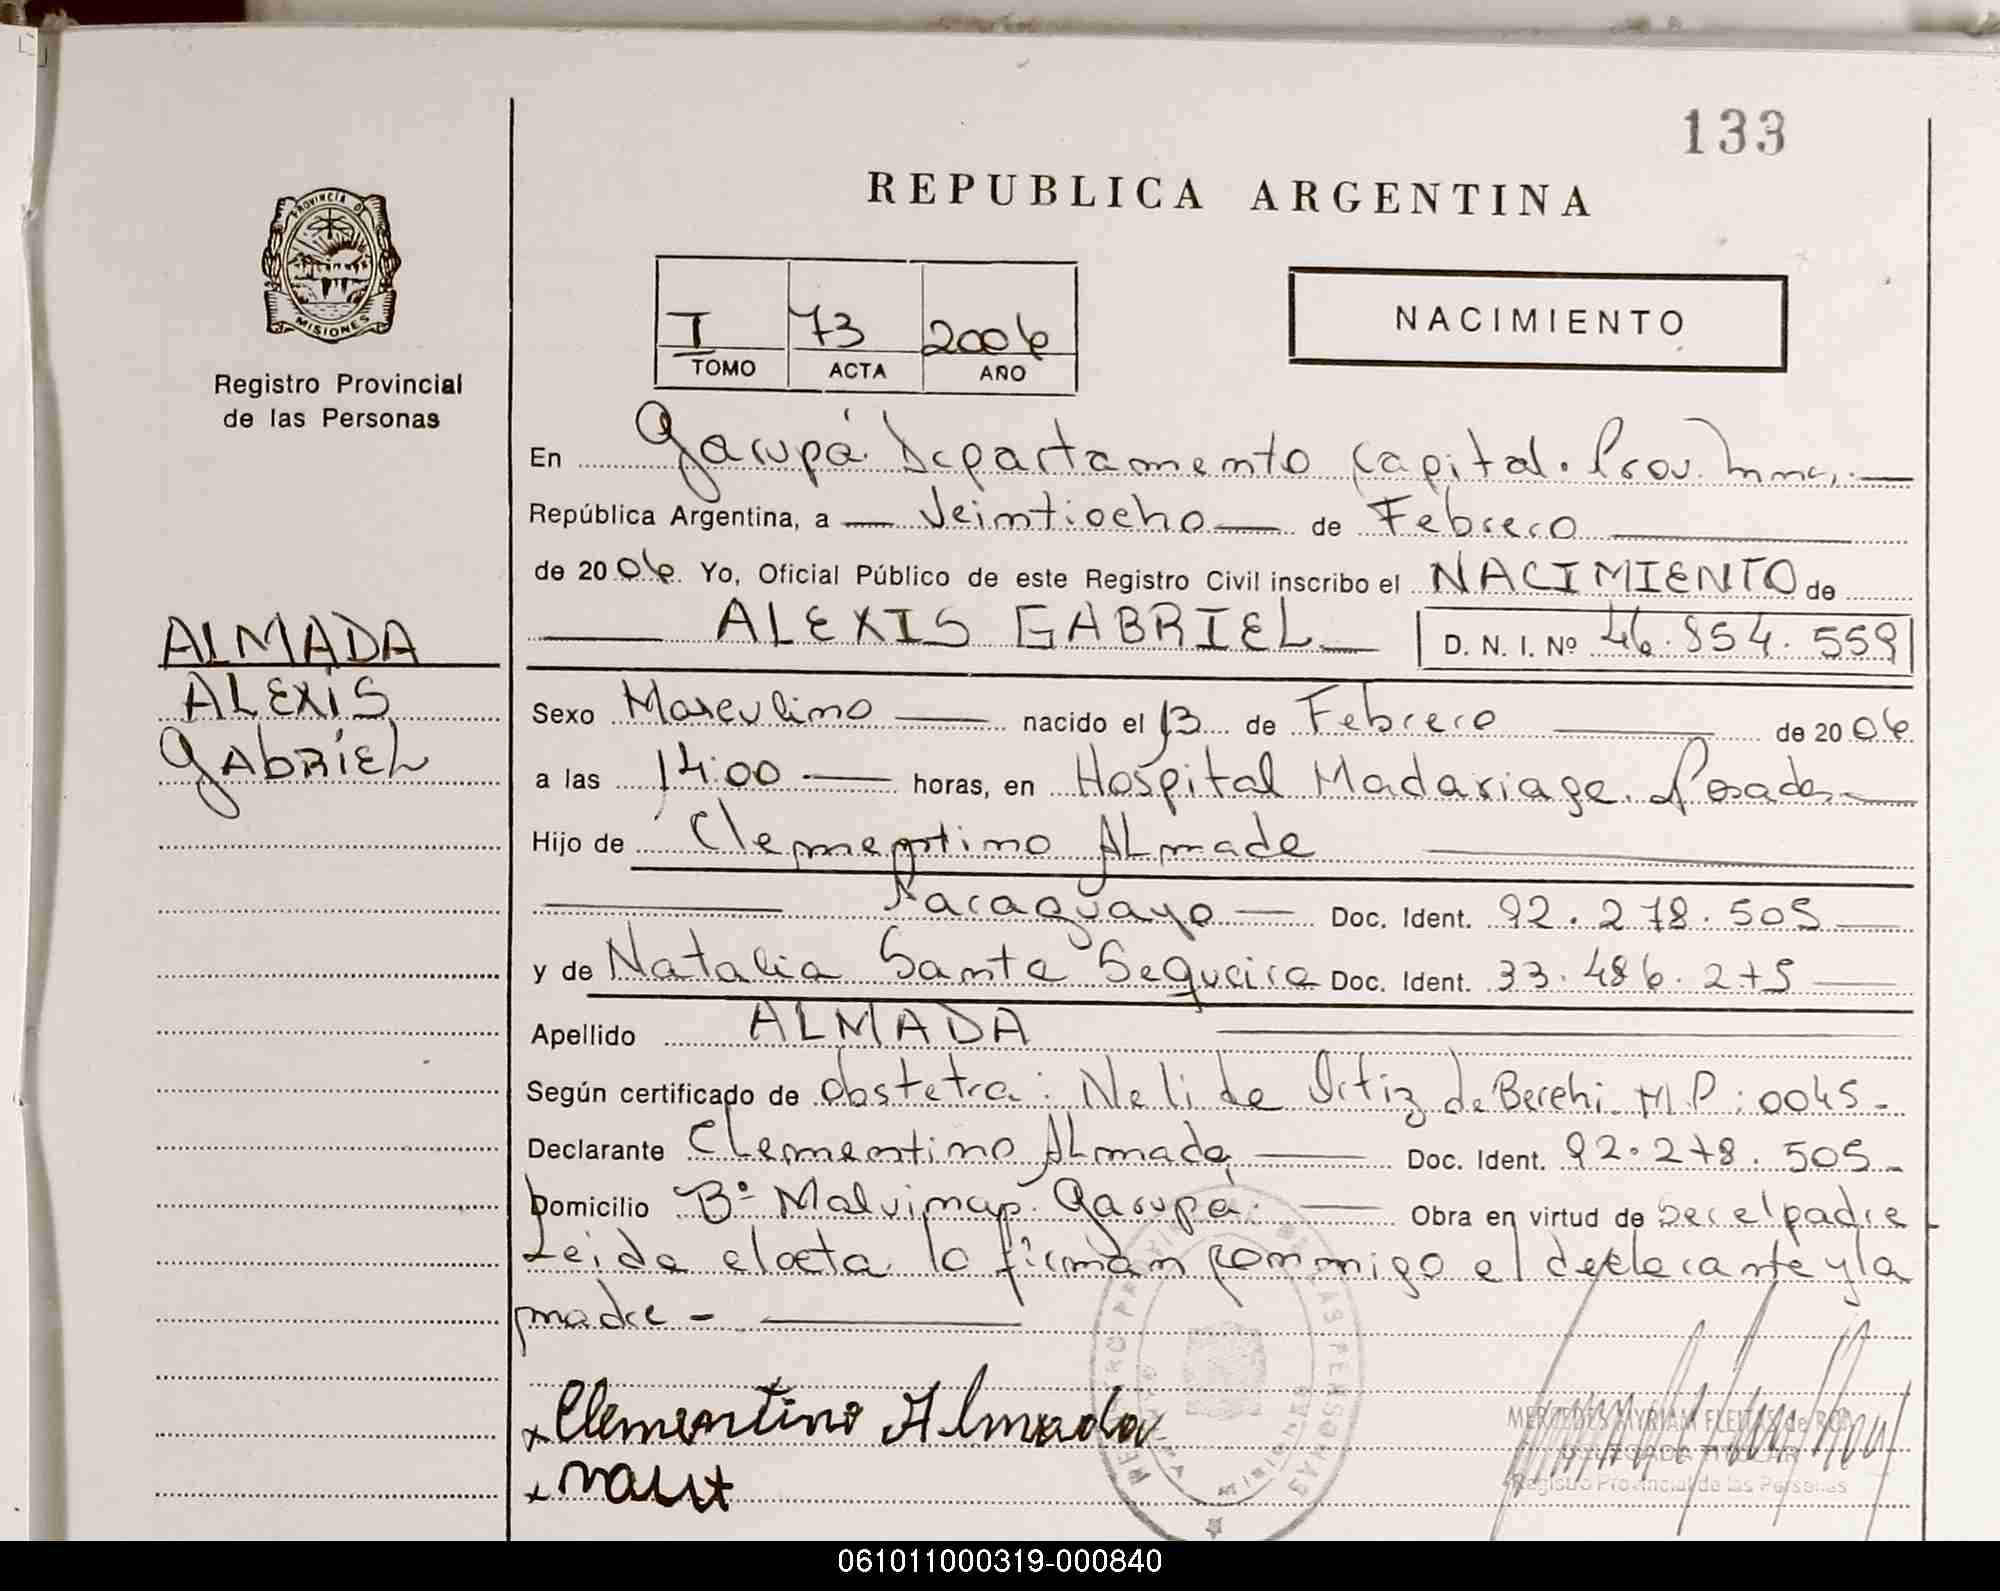 133
REPUBLICA ARGENTINA
PROVINCIA D
MISIONES
Registro Provincial
de las Personas
I 73 2006
TOMO ACTA AÑO
NACIMIENTO
En Garupá Departamento Capital. Prov. Mnes.
República Argentina, a Veintiocho de Febrero
de 2006. Yo, Oficial Público de este Registro Civil inscribo el NACIMIENTO de
ALEXIS GABRIEL D. N. I. Nº 46.854.559
ALMADA
ALEXIS
GABRIEL
Sexo Masculino nacido el 13 de Febrero de 2006
a las 14:00 horas, en Hospital Madariaga. Posadas
Hijo de Clementino Almada
Paraguayo Doc. Ident. 92.278.505
y de Natalia Santa Sequeira Doc. Ident. 33.486.275
Apellido ALMADA
Según certificado de obstetra: Nelide Ortiz de M.P: 0045-
Declarante Clementino Almada Doc. Ident. 92.278.505-
Domicilio Bº Malvinas Garupá. Obra en virtud de ser el padre
Leida el acta la firman conmigo el declarante y la
madre -
REGISTRO PROVINCIAL DE LAS PERSONAS
MISIONES
x Clementino Almada
x
MERCEDES MYRIAM FLEITAS de ROA
DELEGADA TITULAR
Registro Provincial de las Personas
061011000319-000840